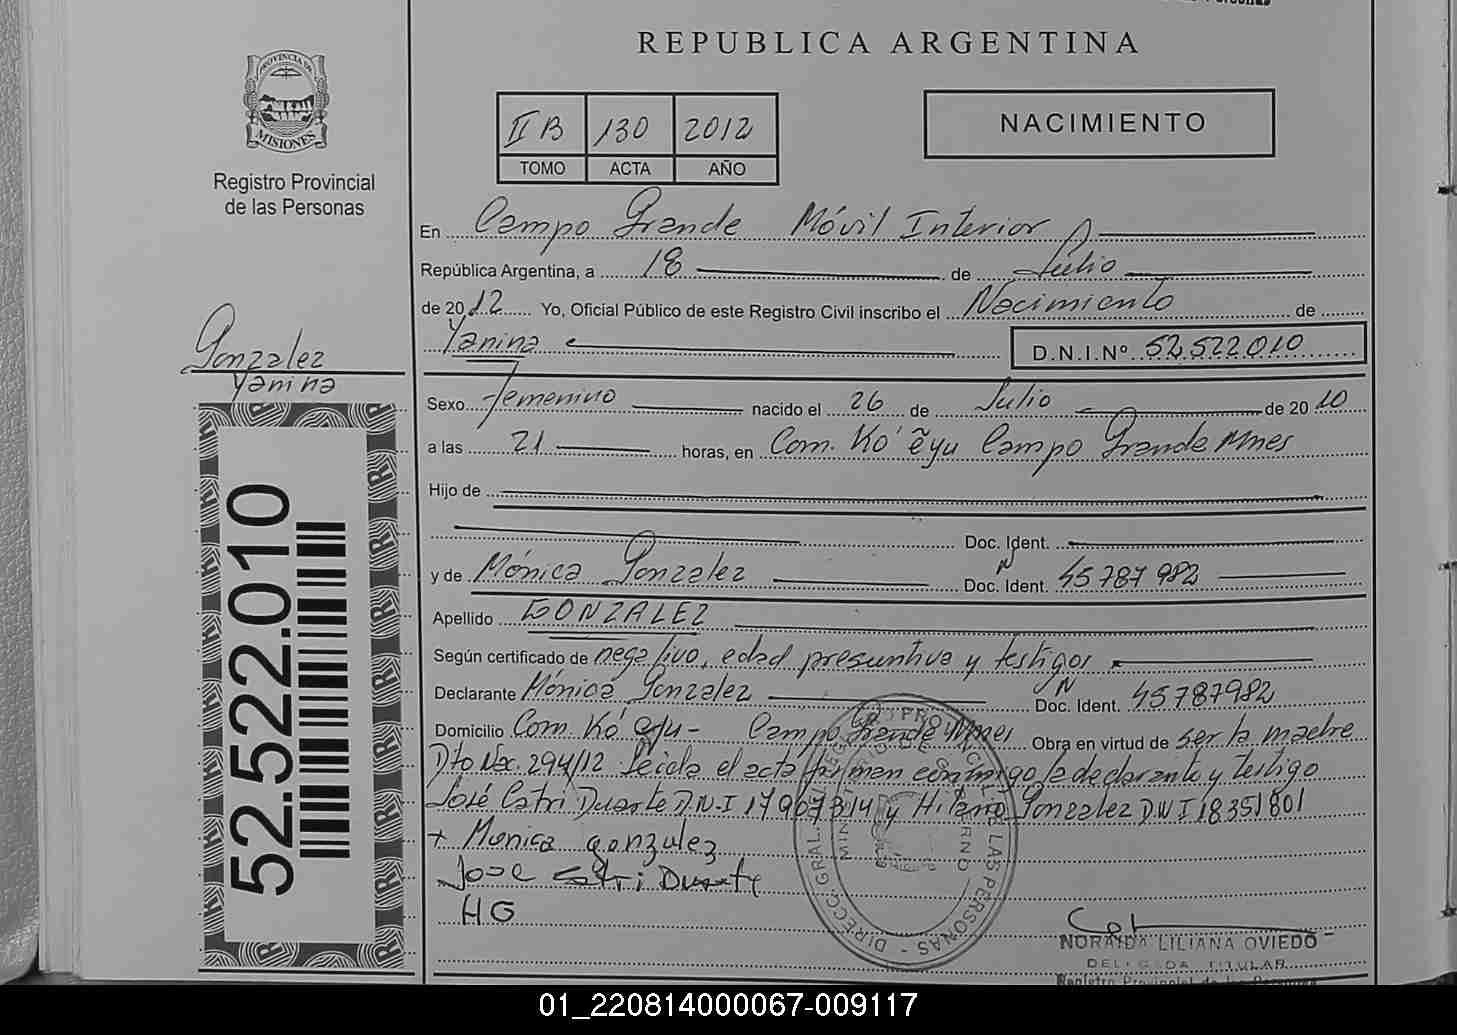 REPUBLICA ARGENTINA
PROVINCIA DE
MISIONES
Registro Provincial
de las Personas
II B 130 2012
TOMO ACTA AÑO
NACIMIENTO
En Campo Grande Móvil Interior
República Argentina, a 18 de Julio
de 2012 Yo, Oficial Público de este Registro Civil inscribo el Nacimiento de
Yanina D.N.I.Nº 52.522.010
Gonzalez
Yanina
Sexo femenino nacido el 26 de Julio de 2010
a las 21 horas, en Com. Ko' ẽyu Campo Grande Mnes
Hijo de
Doc. Ident.
y de Mónica Gonzalez Doc. Ident. N 45787982
Apellido GONZALEZ
Según certificado de negativo, edad presuntiva y testigos
Declarante Mónica Gonzalez Doc. Ident. N 45787982
Domicilio Com. Kó eyu - Campo Grande Mnes Obra en virtud de ser la madre
Dto Nac. 294/12 Leida el acta firman conmigo la declarante y testigo
José Catri Duarte D.N.I 17907314 y Gonzalez DNI 18351801
+ Monica gonzulez
Jose Catri Duarte
HG
52.522.010
DIRECC. GRAL. DEL REGISTRO PROVINCIAL DE LAS PERSONAS
NORAIDA LILIANA OVIEDO
DELEGADA TITULAR
Registro Provincial de las Personas
01_220814000067-009117